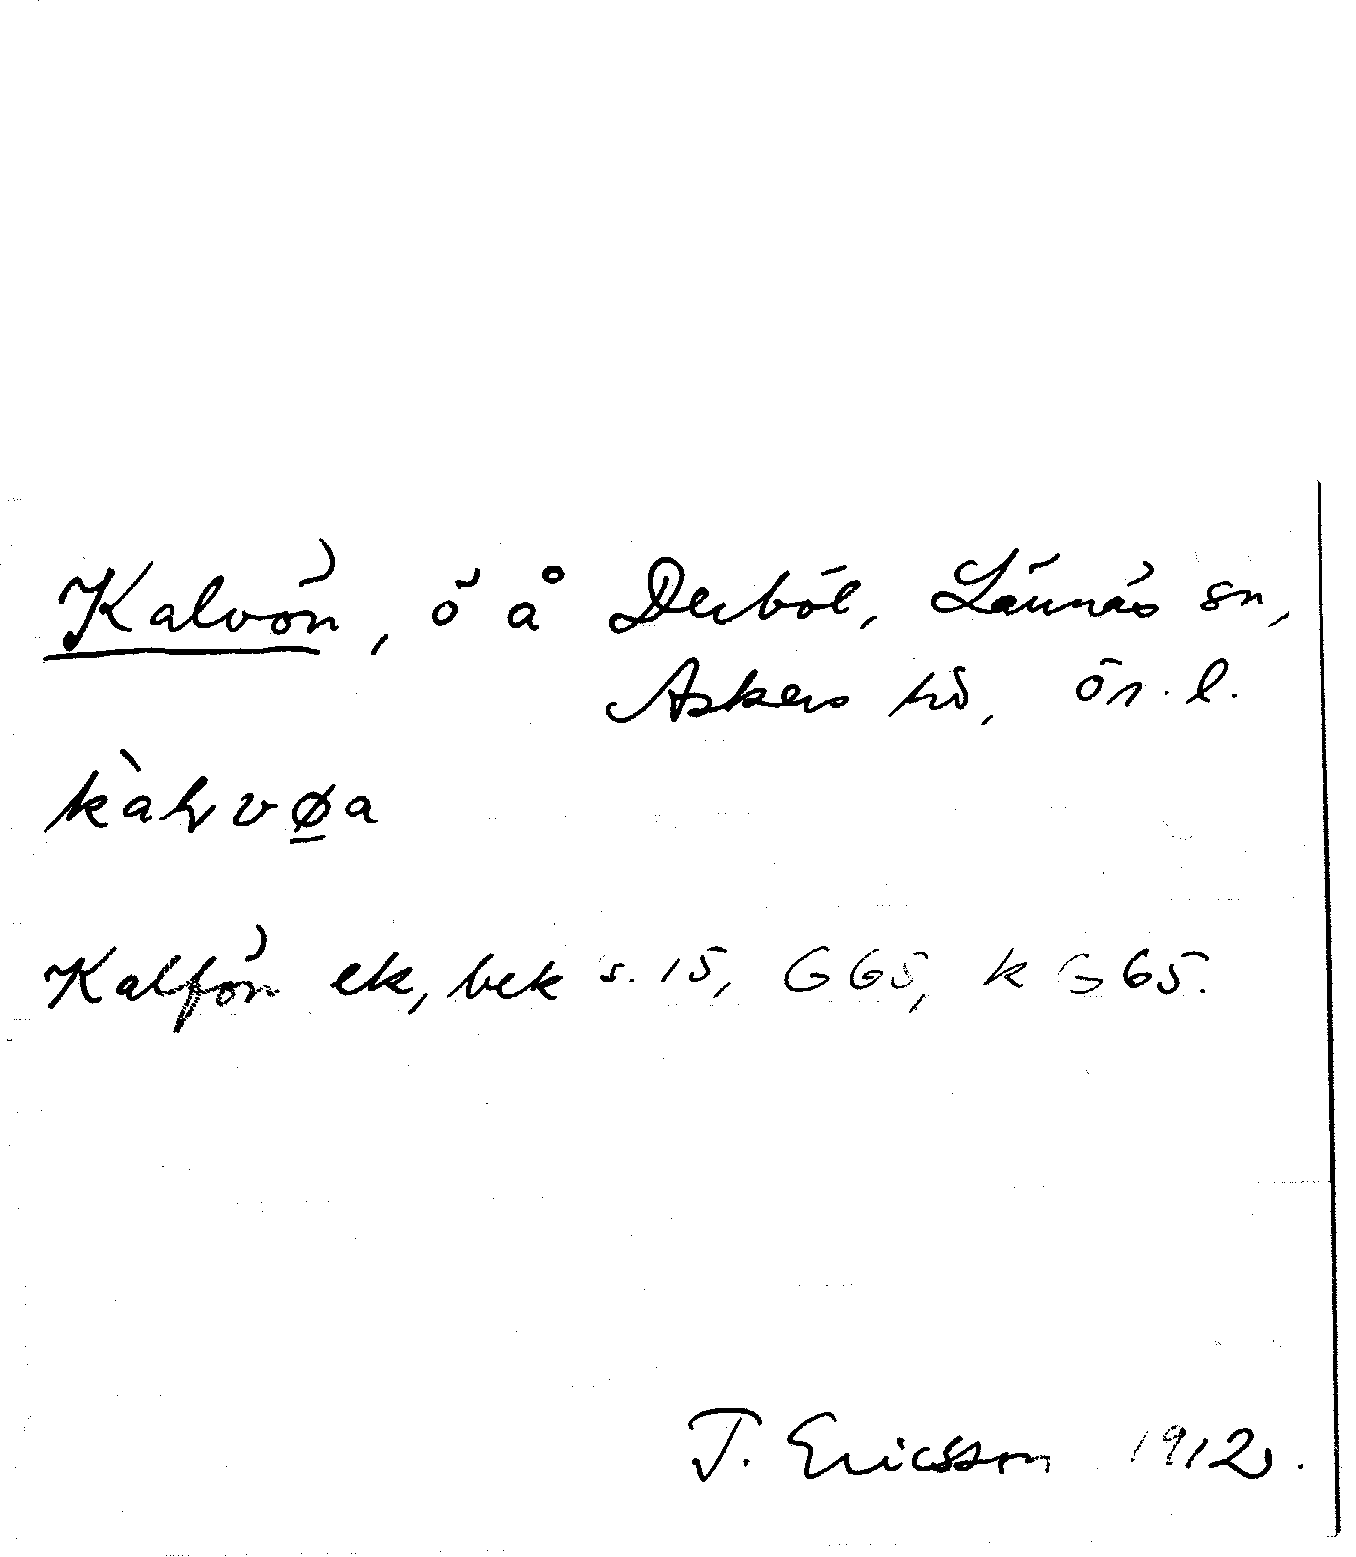 Kalvön, ö å Derböl, Lännäs sn,
Askers hd, Ör. l.
Kalfön ek, bek s. 15, G65, k G65.
T. Ericsson 1912.